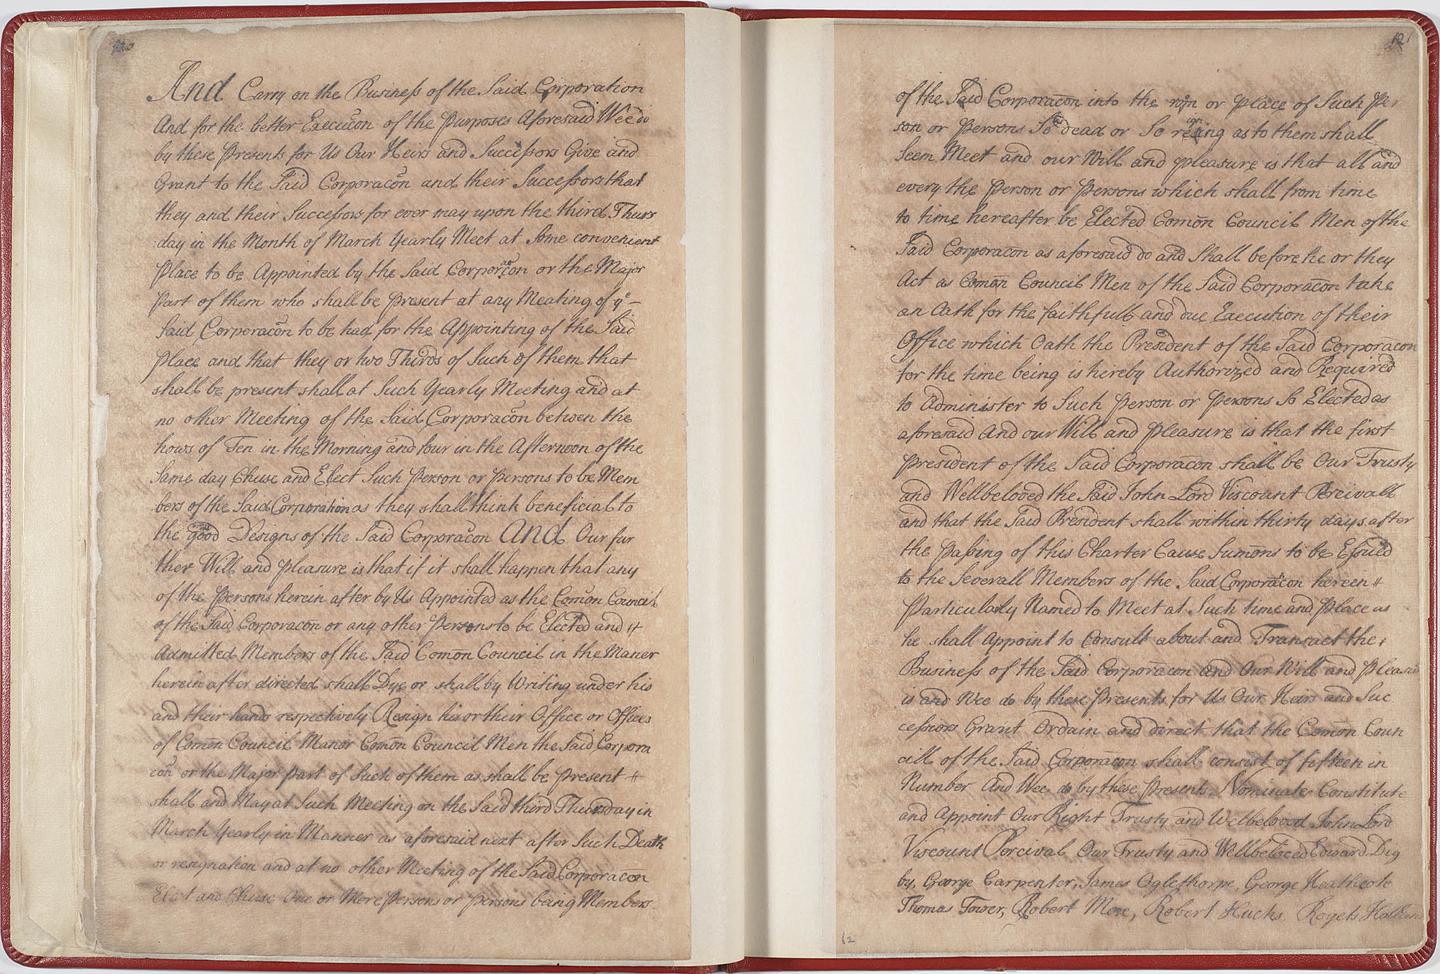 120
And Carry on the Business of the Said Corporation
And for the better Execucōn of the Purposes Aforesaid Wee do
by these Presents for Us Our Heirs and Successors Give and
Grant to the Said Corporacōn and their Successors that
they and their Successors for ever may upon the third Thurs
day in the Month of March Yearly Meet at Some convenient
Place to be Appointed by the Said Corporacōn or the Major
Part of them who shall be present at any Meating of yᵉ
Said Corporacōn to be had for the Appointing of the Said
Place and that they or two Thirds of Such of them that
shall be present shall at Such Yearly Meeting and at
no other Meeting of the Said Corporacōn between the
hours of Ten in the Morning and four in the Afternoon of the
Same day Chuse and Elect Such Person or Persons to be Mem
bers of the Said Corporation as they shall think beneficial to
the good Designs of the Said Corporacōn And Our fur
ther Will and pleasure is that if it shall happen that any
of the Persons herein after by Us Appointed as the Comōn Council
of the Said Corporacōn or any other Persons to be Elected and
Admitted Members of the Said Comōn Council in the Maner
herein after directed shall Dye or shall by Writing under his
and their hands respectively Resign his or their Office or Offices
of Comōn Council Man or Comōn Council Men the Said Corpora
cōn or the Major part of Such of them as shall be present
shall and May at Such Meeting on the Said third Thursday in
March Yearly in Manner as aforesaid next after Such Death
or resignation and at no other Meeting of the Said Corporacōn
Elect and Chuse One or More Persons or Persons being Members
121
of the Said Corporacōn into the room or place of Such Per
son or Persons So dead or So resigning as to them shall
Seem Meet and our Will and pleasure is that all and
every the Person or Persons which shall from time
to time hereafter be Elected Comōn Council Men of the
Said Corporacōn as aforesaid do and Shall before he or they
Act as Comōn Council Men of the Said Corporacōn take
an Oath for the faithfull and due Execution of their
Office which Oath the President of the Said Corporacōn
for the time being is hereby Authorized and Required
to Administer to Such Person or Persons So Elected as
aforesaid And our Will and pleasure is that the first
President of the Said Corporacōn shall be Our Trusty
and Wellbeloved the Said John Lord Viscount Percivall
and that the Said President shall within thirty days after
the passing of this Charter Cause Sumōns to be Essued
to the Severall Members of the Said Corporacōn herein
Particularly Named to Meet at Such time and place as
he shall Appoint to Consult about and Transact the
Business of the Said Corporacōn and Our Will and pleasure
is and Wee do by these Presents for Us Our Heirs and Suc
cessors Grant Ordain and direct that the Comōn Coun
cill of the Said Corporacōn shall consist of fifteen in
Number And Wee do by these Presents Nominate Constitute
and Appoint Our Right Trusty and Welbeloved John Lord
Viscount Percival Our Trusty and Wellbeloved Edward Dig
by, George Carpenter, James Oglethorpe, George Heathcote
Thomas Tower, Robert More, Robert Hucks, Rogers Holland
62